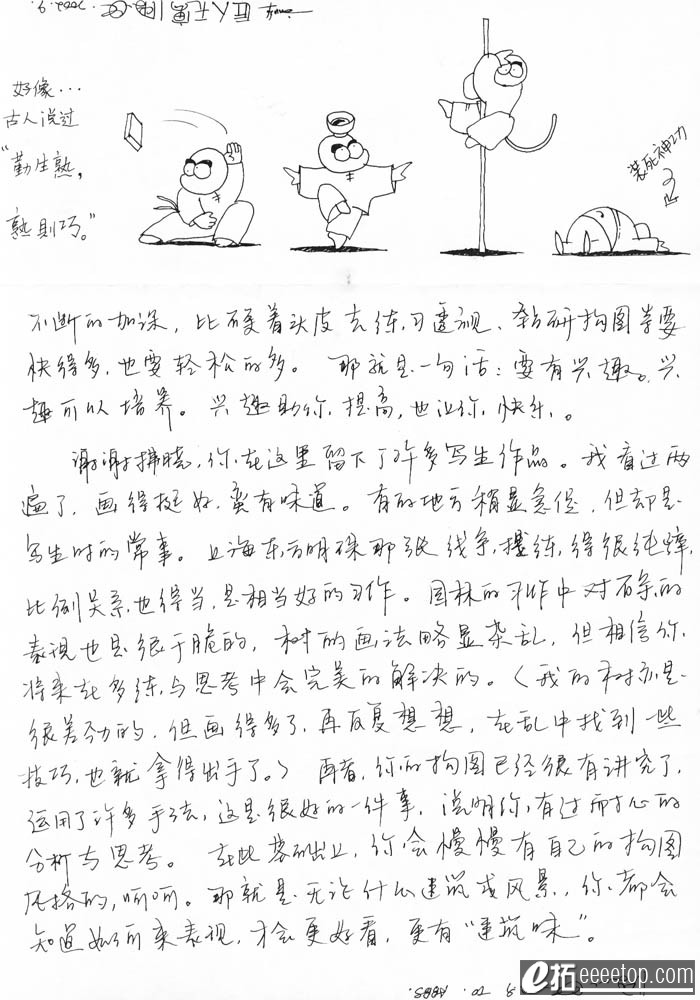 好像...
古人说过
"勤生熟，
熟则巧。"
装死神功
不断的加深，比硬着头皮去练习透视、钻研构图等要
快得多，也要轻松的多。那就是一句话：要有兴趣。兴
趣可以培养。兴趣助你提高，也让你快乐。
谢谢拂晓，你在这里留下了许多写生作品。我看过两
遍了，画得挺好，蛮有味道。有的地方稍显急促，但却是
写生时的常事。上海东方明珠那张线条，提练得很纯粹，
比例关系也得当，是相当好的习作。园林的习作中对石条的
表现也是很干脆的，树的画法略显杂乱，但相信你
将来在多练与思考中会完美的解决的。（我的树亦是
很差劲的，但画得多了，再反复想想，在乱中找到一些
技巧，也就拿得出手了。）再者，你的构图已经很有讲究了，
运用了许多手法，这是很好的一件事，说明你有过而于心的
分析与思考。在此基础上，你会慢慢有自己的构图
风格的，呵呵。那就是无论什么建筑或风景，你都会
知道如何来表现，才会更好看，更有"建筑味"。
e拓 eeeetop.com